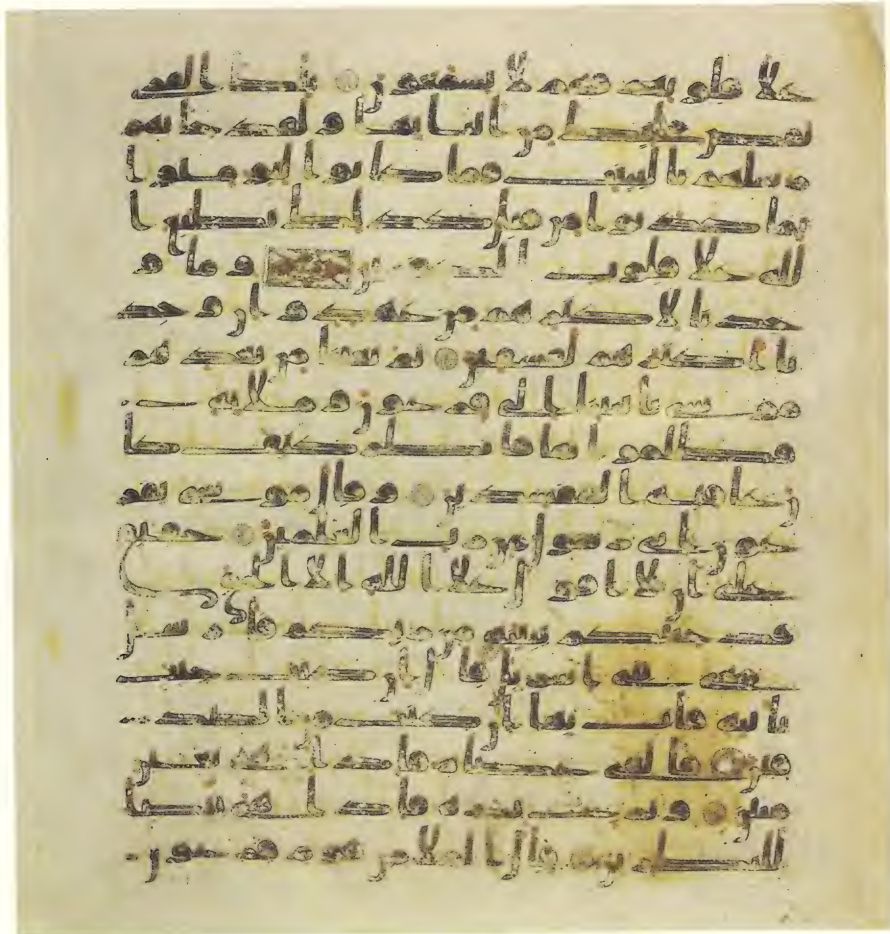 على قلوبهم فهم لا يسمعون تلك القرى
نقص عليك من انبائها ولقد جاتهم
رسلهم بالبينت فما كانوا ليومنوا
بما كذبوا من قبل كذلك يطبع ا
لله على قلوب الكفرين وما و
جدنا لاكثرهم من عهد وان وجد
نا اكثرهم لفسقين ثم بعثنا من بعدهم
موسى بايتنا الى فرعون وملايه
فظلموا بها فانظر كيف كا
ن عقبة المفسدين وقال موسى يفر
عون انى رسول من رب العلمين حقيق
على ان لا اقول على الله الا الحق
قد جئتكم ببينة من ربكم فارسل
معى بنى اسريل قال ان كنت جئت
باية فات بها ان كنت من الصد
قين فالقى عصاه فاذا هى ثعبن
مبين ونزع يده فاذا هى بيضا
للنظرين قال الملا من قوم فرعون